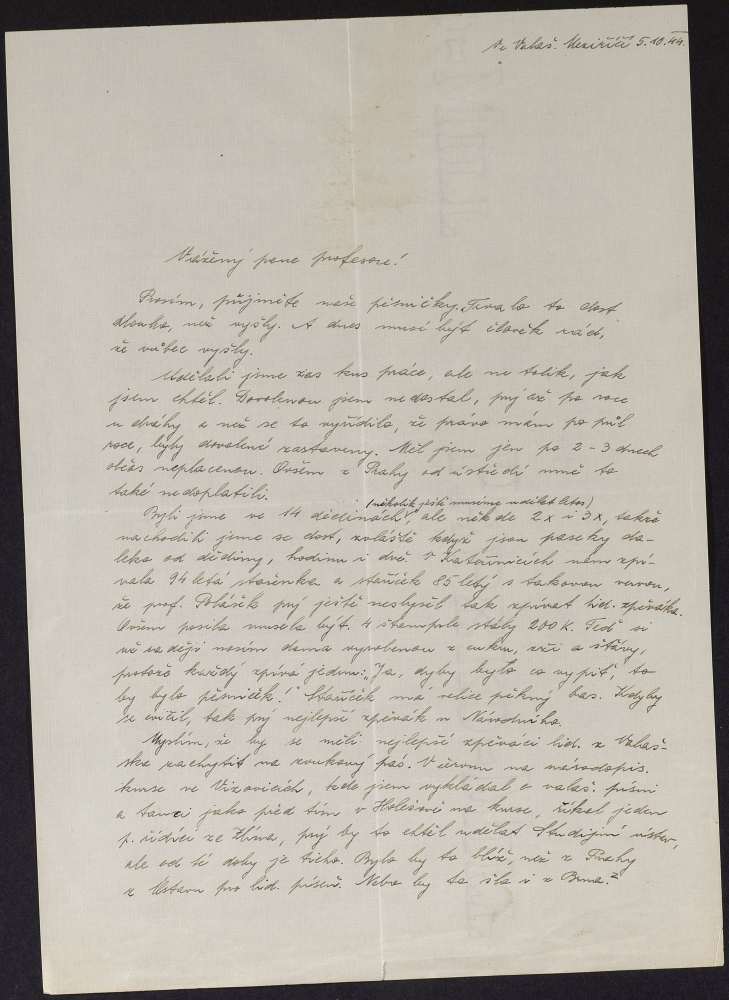 Ve Valaš. Meziříčí 5.10.44.
Vážený pane profesore!
Prosím, přijměte naše písničky. Trvalo to dost
dlouho, než vyšly. A dnes musí být člověk rád,
že vůbec vyšly.
Udělali jsme zas kus práce, ale ne tolik, jak
jsem chtěl. Dovolenou jsem nedostal, prý až po roce
u dráhy a než se to vyřídilo, že právo mám po půl
roce, byly dovolené zastaveny. Měl jsem jen po 2-3 dnech
občas neplacenou. Ovšem z Prahy od ústředí mně to
také nedoplatili.
Byli jsme ve 14 dědinách, (několik ještě musíme udělat letos) ale někde 2x i 3x, takže
nachodili jsme se dost, zvláště když jsou paseky da-
leko od dědiny, hodinu i dvě. V Kateřinicích nám zpí-
vala 94 letá stařenka a stařiček 85 letý s takovou vervou,
že prof. Polášek prý ještě neslyšel tak zpívat lid. zpěváka.
Ovšem posila musela být. 4 štamprle stály 200 K. Teď si
už raději nosím doma vyrobenou z cukru, a šťávy,
protože každý zpívá jedno: „Ja, dyby bylo co vypiť, to
by bylo pěsniček!" Stařiček má velice pěkný bas. Kdyby
se cvičil, tak prý nejlepší zpěvák u Národního.
Myslím, že by se měli nejlepší zpěváci lid. z Valaš-
ska zachytit na zvukový pás. V červnu na národopis.
kurse ve Vizovicích, kde jsem vykládal o valaš. písni
a tanci jako před tím v Holešově na kurse, říkal jeden
p. řídící ze Zlína, prý by to chtěl udělat Studijní ústav,
ale od té doby je ticho. Bylo by to blíž, než z Prahy
z Ústavu pro lid. píseň. Nebo by to šlo i z Brna?